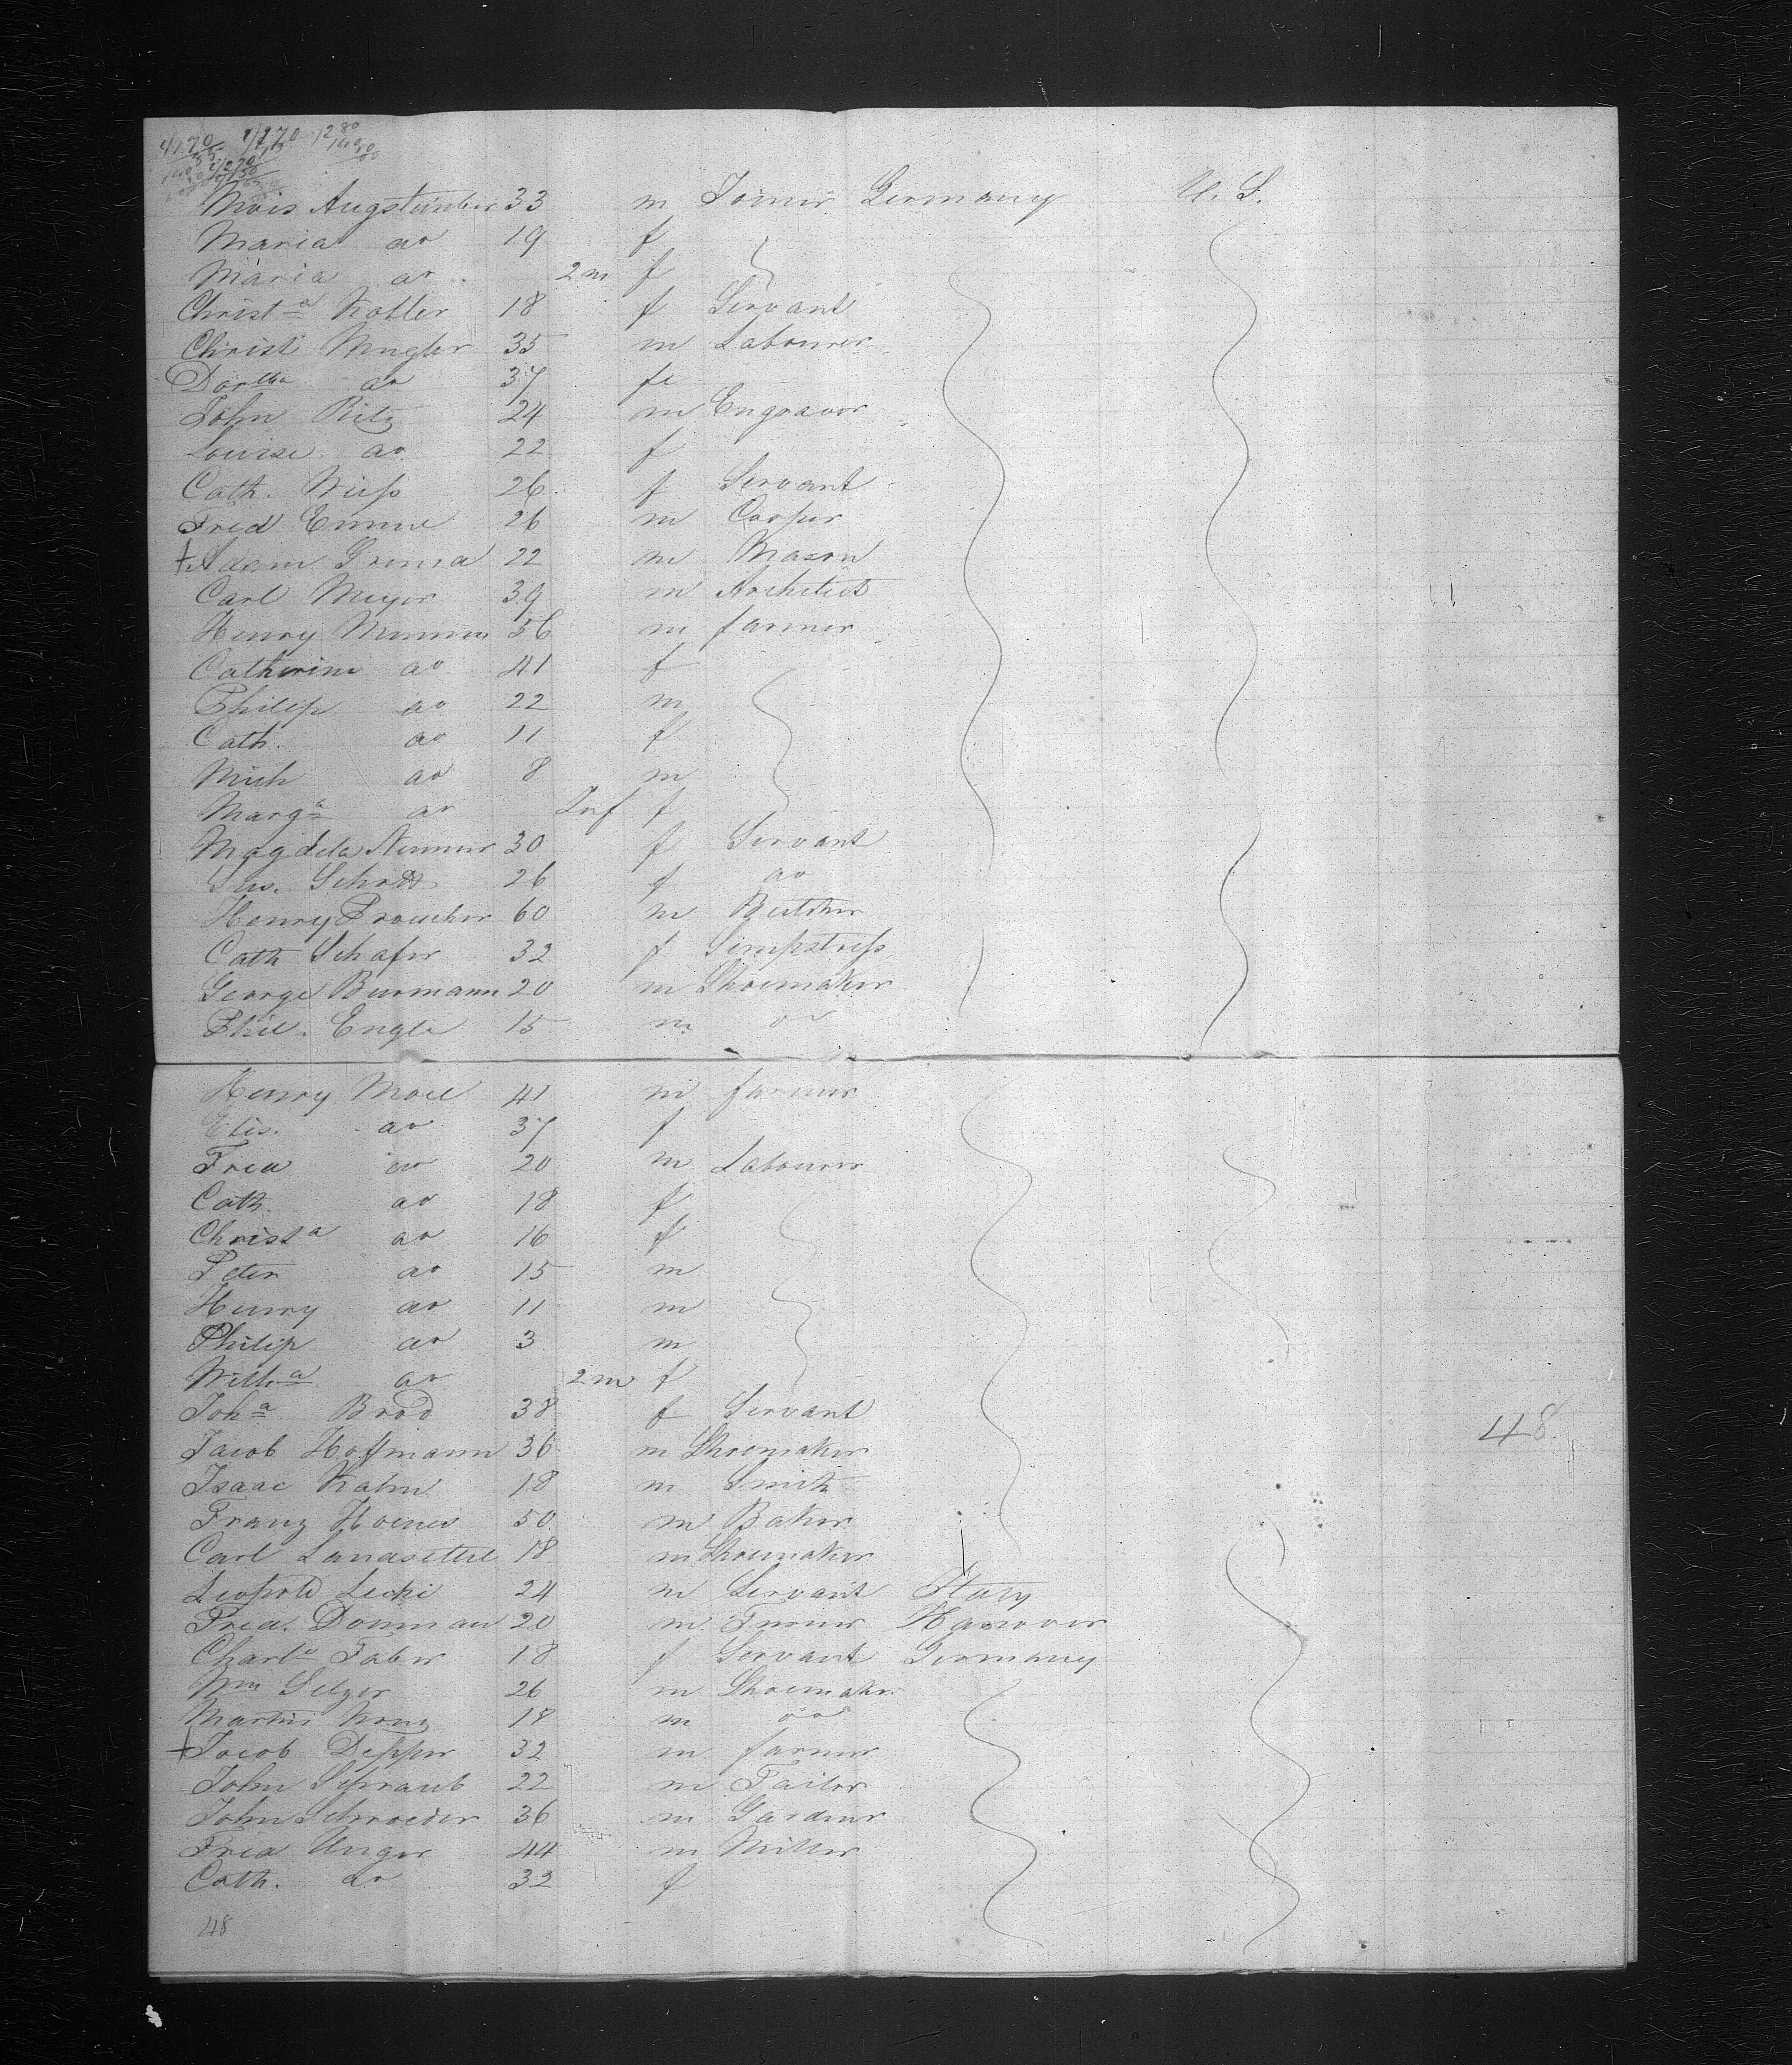 Mois Augstunber 33 m Joiner Germany U. S.
Maria do 19 f
Maria do 2m f
Christa Kotler 18 f Servant
Christ Mugler 35 m Labourer
Dortha do 37 fe
John Ritz 24 m Engraver
Louise do 22 f
Cath. Wiess 26 f Servant
Fred Emme 26 m Cooper
+ Adam 22 m Mason
Carl Meyer 39 m Architect
Henry 56 m farmer
Catherine do 41 f
Philip do 22 m
Cath. do 11 f
Mich do 8 m
Marga do Inf f
Magdela 30 f Servant
Sus. Schott 26 f do
Henry 60 m Butcher
Cath Schafer 32 f Simpstress
George Burmann 20 m Shoemaker
Phil. Engle 15 m do
Henry Moll 41 m farmer
Elis. do 37 f
Fred do 20 m Labourer
Cath. do 18 f
Christa do 16 f
Peter do 15 m
Henry do 11 m
Philip do 3 m
Willa do 2m f
Joha Brod 38 f Servant
48
Jacob Hoffmann 36 m Shoemaker
Isaac Kahn 18 m Smith
Franz Hoenes 50 m Baker
Carl 18 m Shoemaker
Leopold Lecki 24 m Servant Italy
Fred. Domman 20 m Turner Hanover
Charlo Faber 18 f Servant Germany
Wm Selzer 26 m Shoemaker
Martin 18 m do
+ Jacob Depper 32 m farmer
John Schraub 22 m Tailor
John Schroeder 36 m Gardner
Fred Unger 44 m Miller
Cath. do 32 f
48